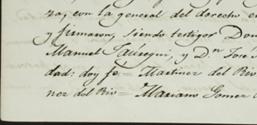 za, con la general del derecho en
y firmaron, siendo testigos Don
Manuel Jauregui, y Dn José
dad: doy fe = Martinez del Rio
nez del Rio = Mariano Gomez